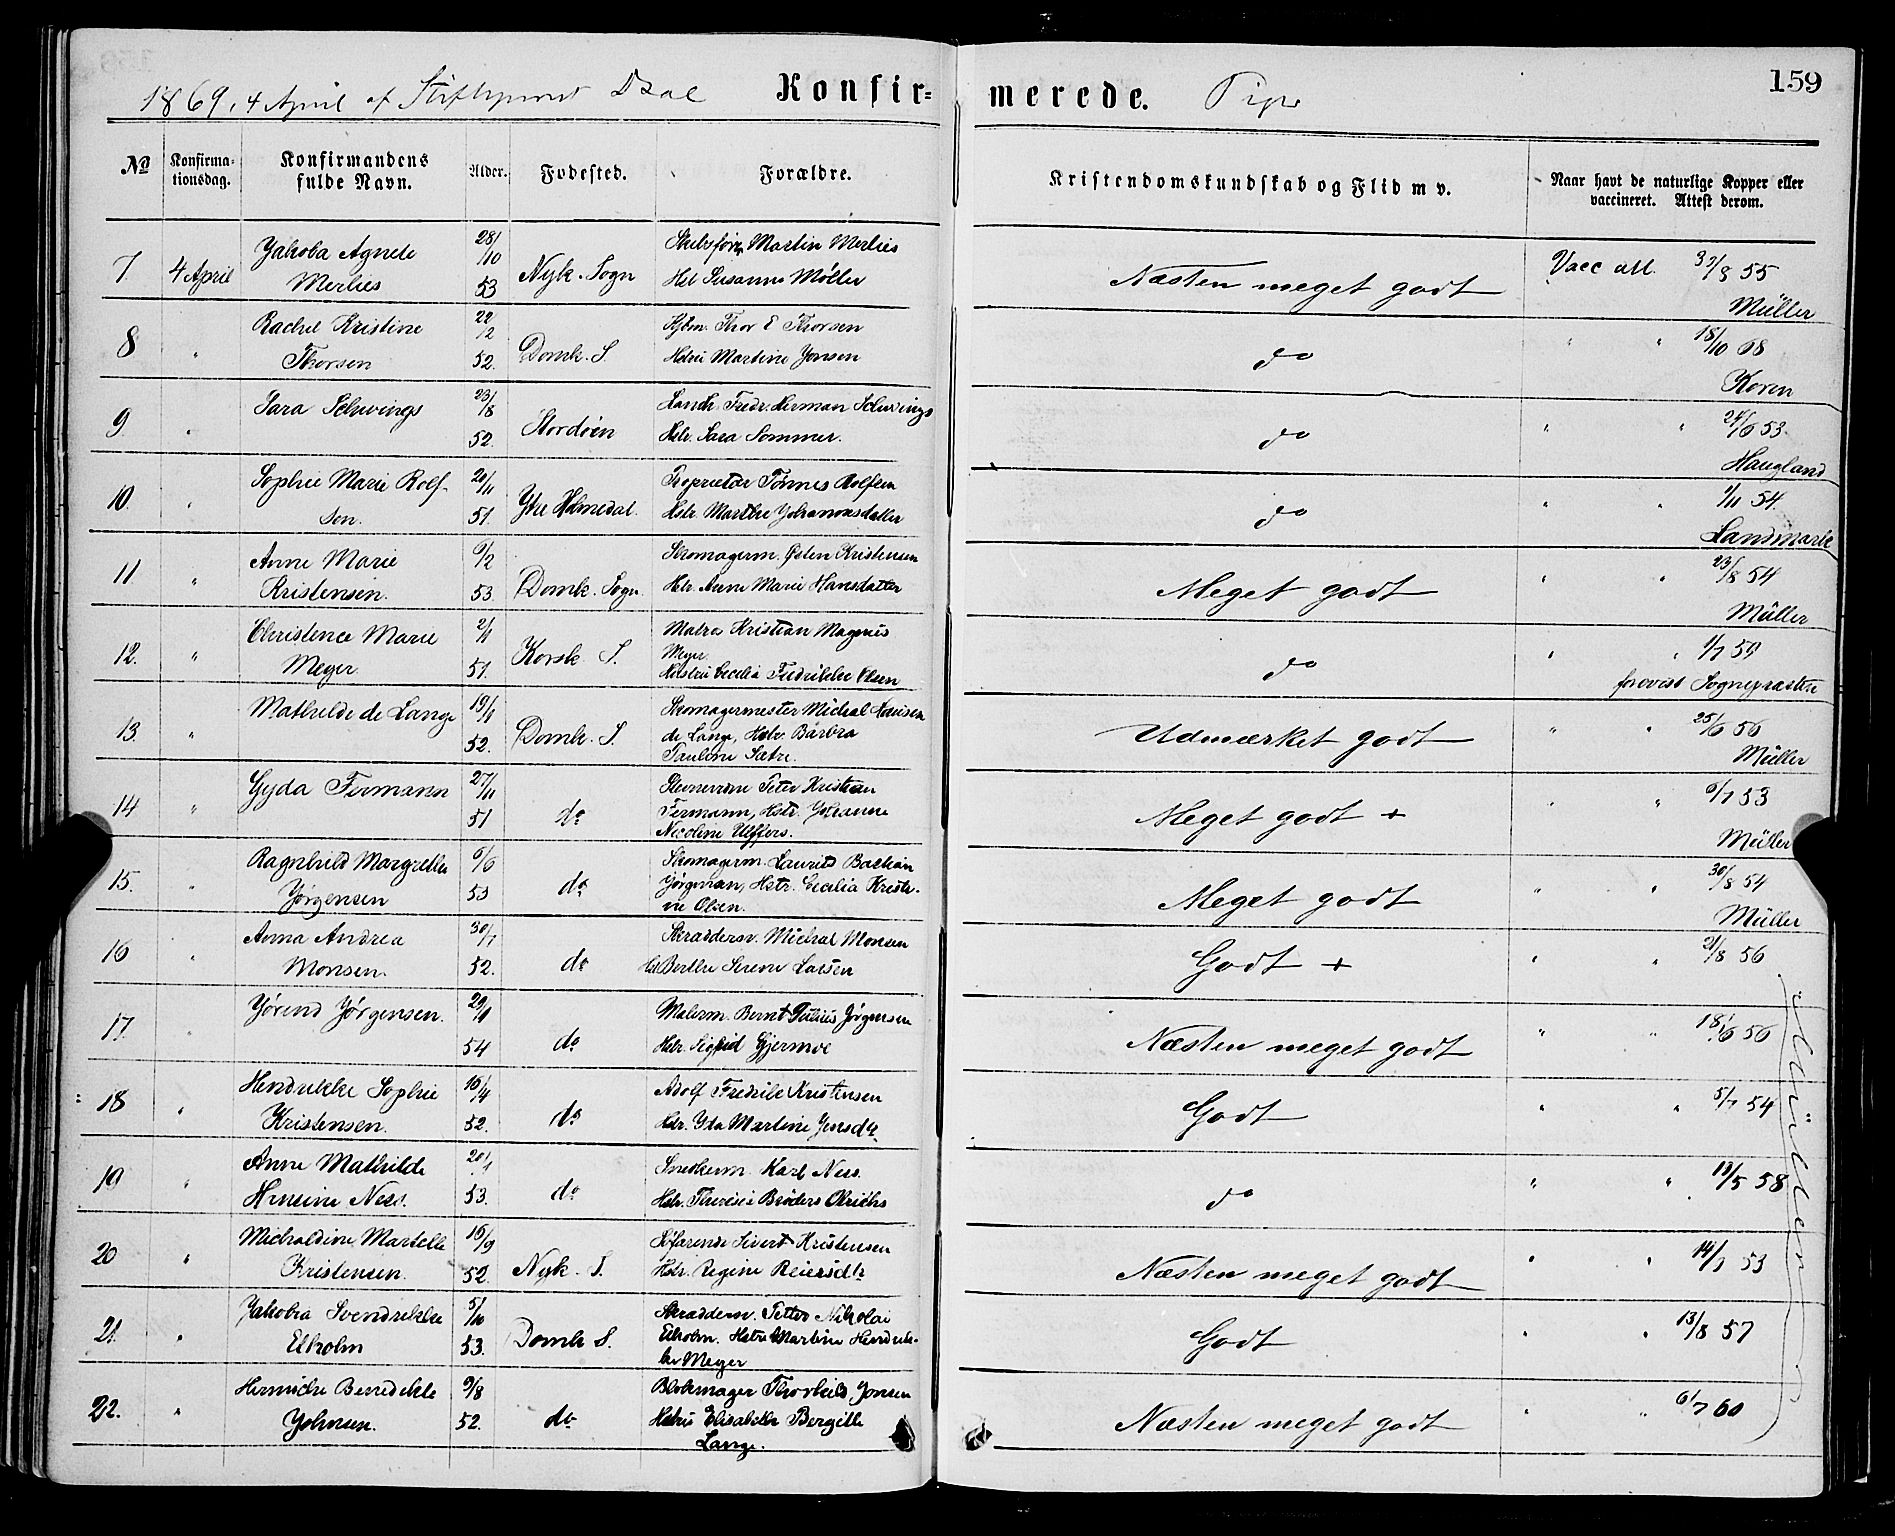 159
1869, 4 April af Stiftsprovst Dæl Konfir= merede. Piger
№ Konfirma-tionsdag. Konfirmandens fulde Navn. Alder. Fødested. Forældre. Kristendomskundskab og Flid m v. Naar havt de naturlige Kopper eller vaccineret. Attest derom.
7 4 April Jakoba Agnete 28/10 Martin Merlies
Merlies 53 Nyk. Sogn Susanne Møller Næsten meget godt Vacc att. 55 Müller
8 " Rachel Kristine 22/2 Thor E Thorsen
Thorsen 52. Domk. S. Hstru Martine Jonsen do " " 18/10 68 Koren
9. " Sara Schwings 23/8 Fredr. Herman Schwings
52. Stordøen Hstr. Sara Sommer. do " " 53. Haugland
10. " Sophie Marie Rolf- 20/11 Proprietær Tønnes Rolfsen
sen. 51. Ytre Holmedal Hstr. Marthe do " " 1/11 54. Landmark
11 " Anne Marie 6/2 Skomagerm. Østen Kristensen
Kristensen. 53. Domk. Sogn. Hstr. Anne Marie Hansdatter Meget godt " " 23/8 54 Müller
12. " Christence Marie Matros Kristian Magnus
Meyer 51. Korsk S. Meyer
Hustru Cecilia Fredrikke Olsen do " " 1/7 59 forevist Sognepræsten
13. " Mathilde de Lange Skomagermester Michal Hansen
52. Domk. S. de Lange, Hstr Barbra
Pauline Sætre. Udmærket godt " " 25/6 56 Müller
14 " Gyda Fermann 27/11 Peter Kristian
51 do Fermann, Hstr. Johanne
Nicoline Ulffers. Meget godt + " " 6/7 53 Müller
15. " Ragnhild Margrethe 6/6 Skomagerm. Laurits Bastian
Jørgensen 53 do Jørgensen, Hstr. Cecilia Kristi-
ne Olsen. Meget godt " " 30/8 54 Müller
16 " Anna Andrea 30/7 Skrædderm. Michal Monsen
Monsen. 52. do Berthe Serene Larsen Godt + " " 21/8 56
17. " Jørend Jørgensen. Malerm. Bernt Julius Jørgensen
54 do Hstr. Sigrid Gjermoe Næsten meget godt " " 18/6 56
18 " Hendrikke Sophie 16/4 Adolf Fredrik Kristensen
Kristensen. 52. do Hstr. Ida Martine Jensdtr. Godt " " 5/7 54
19 " Anne Mathilde 20/1 Snedkerm. Karl Ness.
Hansine Ness. 53. do Hstr. Theresia do " " 19/5 58
20 " Michaldine Martelle 16/9 Søfarende Sivert Kristensen
Kristensen. 52. Nyk. S. Hstr. Regine Reiersdtr Næsten meget godt " " 14/7 53
21. " Jakobia Svendrikke 5/10 Skrædderm. Petter Nikolai
Ekholm 53. Domk S. Ekholm. Hstru Martine Hendrik-
ke Meyer Godt " " 13/8 57
22. " Hermiche Benedikte 9/8 Blokmager Thorkild Jonsen
Johnsen. 52. do Hstru Elisabeth Bergitte
Lange. Næsten meget godt " " 6/7 60